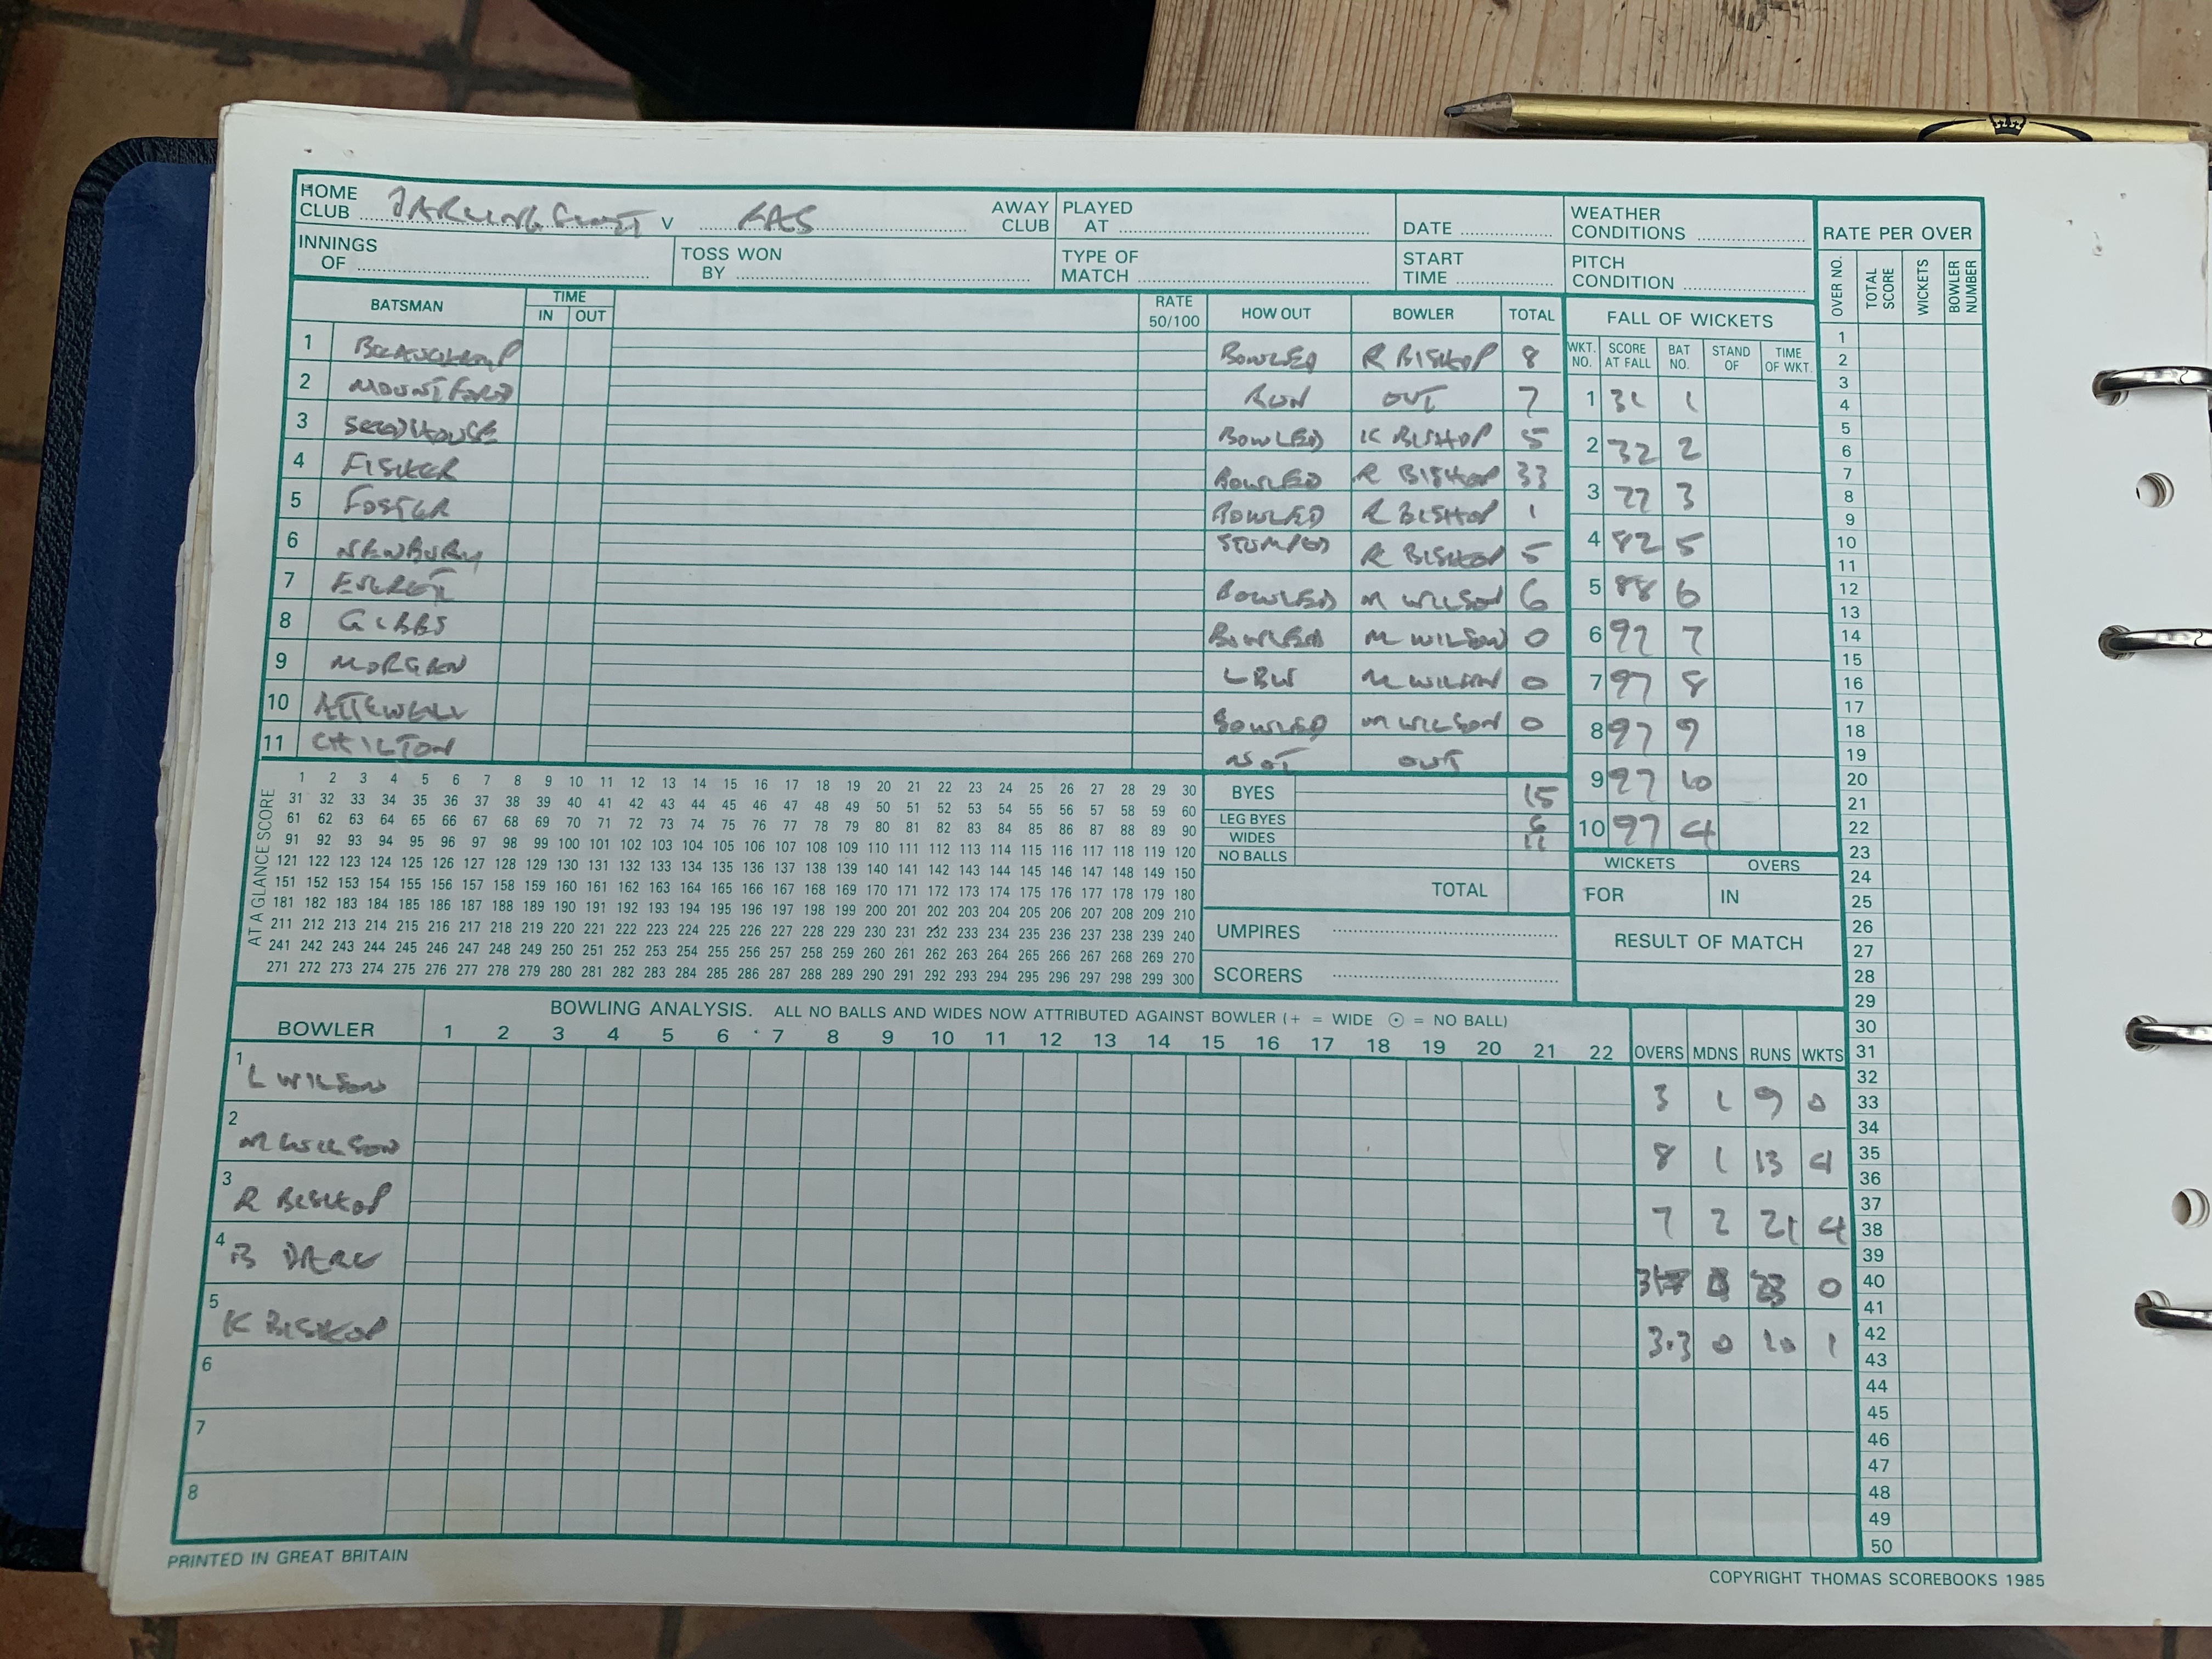 HOME CLUB V FAS AWAY CLUB PLAYED AT DATE WEATHER CONDITIONS RATE PER OVER
INNINGS OF TOSS WON BY TYPE OF MATCH START TIME PITCH CONDITION OVER NO. TOTAL SCORE WICKETS BOWLER NUMBER
BATSMAN TIME IN OUT RATE 50/100 HOW OUT BOWLER TOTAL
1 BEAUCHAMP BOWLED R BISHOP 8
2 MOUNTFORD RUN OUT 7
3 BOWLED K BISHOP 5
4 FISHER BOWLED R BISHOP 33
5 FOSTER BOWLED R BISHOP 1
6 NEWBURY STUMPED R BISHOP 5
7 BOWLED M WILSON 6
8 GIBBS BOWLED M WILSON 0
9 MORGAN LBW M WILSON 0
10 ATTEWELL BOWLED M WILSON 0
11 CHILTON NOT OUT
FALL OF WICKETS
WKT. NO. SCORE AT FALL BAT NO. STAND OF TIME OF WKT.
1 31 1
2 32 2
3 3
4 82 5
5 88 6
6 97 7
7 97 8
8 97 9
9 97 10
10 97 4
AT A GLANCE SCORE
1 2 3 4 5 6 7 8 9 10 11 12 13 14 15 16 17 18 19 20 21 22 23 24 25 26 27 28 29 30
31 32 33 34 35 36 37 38 39 40 41 42 43 44 45 46 47 48 49 50 51 52 53 54 55 56 57 58 59 60
61 62 63 64 65 66 67 68 69 70 71 72 73 74 75 76 77 78 79 80 81 82 83 84 85 86 87 88 89 90
91 92 93 94 95 96 97 98 99 100 101 102 103 104 105 106 107 108 109 110 111 112 113 114 115 116 117 118 119 120
121 122 123 124 125 126 127 128 129 130 131 132 133 134 135 136 137 138 139 140 141 142 143 144 145 146 147 148 149 150
151 152 153 154 155 156 157 158 159 160 161 162 163 164 165 166 167 168 169 170 171 172 173 174 175 176 177 178 179 180
181 182 183 184 185 186 187 188 189 190 191 192 193 194 195 196 197 198 199 200 201 202 203 204 205 206 207 208 209 210
211 212 213 214 215 216 217 218 219 220 221 222 223 224 225 226 227 228 229 230 231 232 233 234 235 236 237 238 239 240
241 242 243 244 245 246 247 248 249 250 251 252 253 254 255 256 257 258 259 260 261 262 263 264 265 266 267 268 269 270
271 272 273 274 275 276 277 278 279 280 281 282 283 284 285 286 287 288 289 290 291 292 293 294 295 296 297 298 299 300
BYES 15
LEG BYES 6
WIDES 11
NO BALLS
TOTAL
UMPIRES
SCORERS
WICKETS OVERS
FOR IN
RESULT OF MATCH
BOWLER BOWLING ANALYSIS. ALL NO BALLS AND WIDES NOW ATTRIBUTED AGAINST BOWLER (+ = WIDE ⊙ = NO BALL)
1 2 3 4 5 6 7 8 9 10 11 12 13 14 15 16 17 18 19 20 21 22 OVERS MDNS RUNS WKTS
1 L WILSON 3 1 9 0
2 M WILSON 8 1 13 4
3 R BISHOP 7 2 21 4
4 B 0
5 K BISHOP 3.3 0 10 1
6
7
8
1
2
3
4
5
6
7
8
9
10
11
12
13
14
15
16
17
18
19
20
21
22
23
24
25
26
27
28
29
30
31
32
33
34
35
36
37
38
39
40
41
42
43
44
45
46
47
48
49
50
PRINTED IN GREAT BRITAIN
COPYRIGHT THOMAS SCOREBOOKS 1985